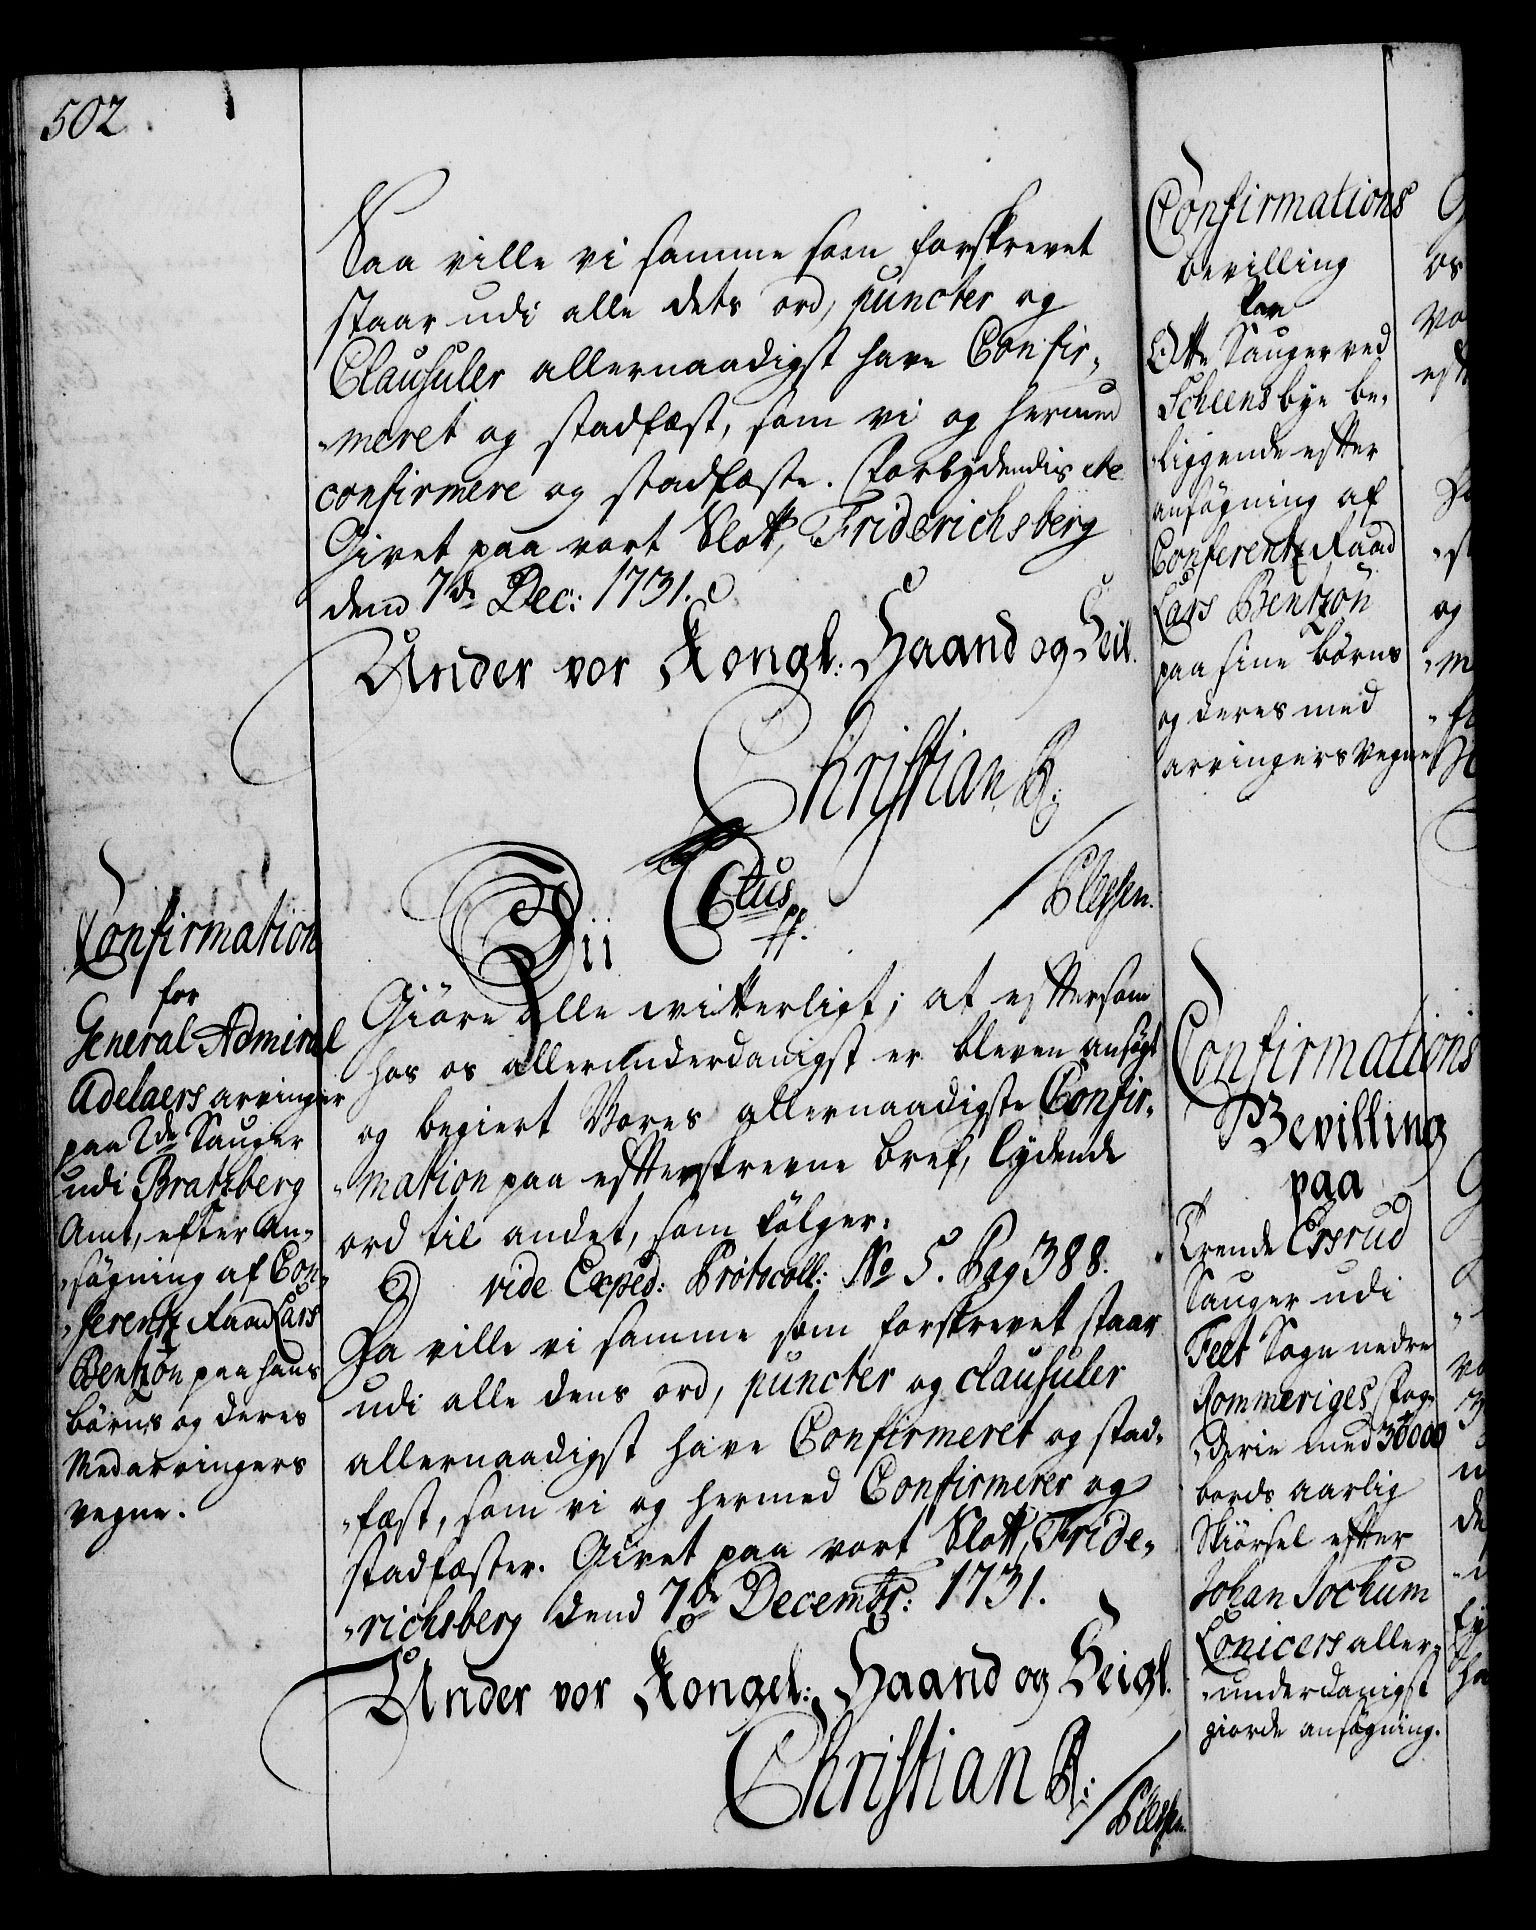 502.
Saa ville vi samme som forskrevet
staar udi alle dets ord, puncter og
Clausuler allernaadigst have Confir„
„meret og stadfæst, som vi og hermed
confirmere og stadfæste. Forbydendis etc
Givet paa vort Slott, Friderichsberg
dend 7de Dec: 1731.
Under vor Kongl: Haand og Seil.
Christian R:
/Plessen.
Confirmation
for
General Admiral
Adelaers arvinger
paa 2de Sauger
udi Bratsberg
Amt, efter an„
„søgning af Con„
„ferentz Raad Lars
Bentzon paa hans
børns og deres
Medarvingers
vegne.
Vii C6tus pp.
Giøre Alle vitterligt; at eftersom
hos os allerunderdanigst er bleven ansøgt
og begiert Vores allernaadigste Confir„
„mation paa efterskrevne bref, lydende
ord til andet, som følger.
vide Exped: Protocoll: No 5. Pag 388.
Da ville vi samme som forskrevet staar
udi alle dens ord, puncter og clausuler
allernaadigst have Confirmeret og stad„
„fæst, som vi og hermed Confirmerer og
stadfæster. Givet paa vort Slott, Fride„
„richsberg dend 7de Decembr: 1731.
Under vor Kongel: Haand og Seigl.
Christian R:
/Plessen.
Confirmations
bevilling
paa
Otte Sauger ved
Scheens bye be„
liggende efter
ansøgning af
Conferentz Raad
Lars Bentzon
paa sine børns
og deres med
arvingers vegne
Confirmations
Bevilling
paa
Trende Ersrud
Sauger udi
Feet Sogn nedre
Rommeriges Fog„
„derie med 30000
bords aarlig
Skiørsel efter
Johan Jochum
Lonicers aller„
„underdanigst
giorde ansøgning.